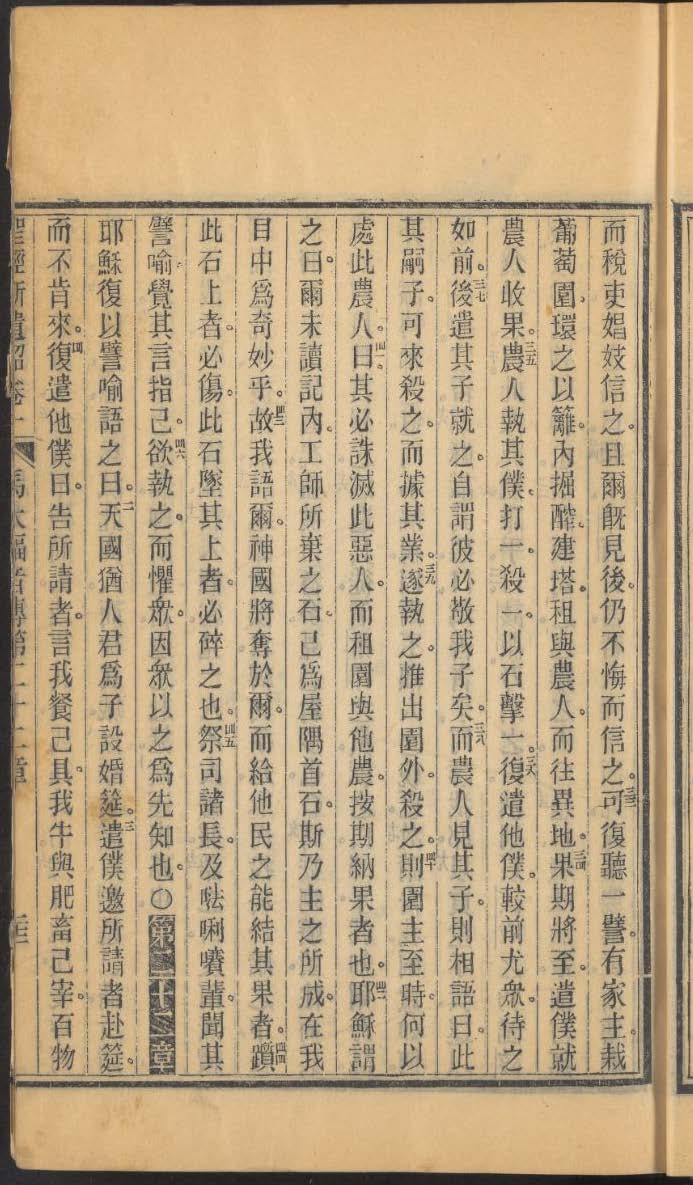 而稅吏娼妓信之。且爾旣見後。仍不悔而信之。三三可復聽一譬。有家主。栽
葡萄園。環之以籬。內掘醡。建塔。租與農人。而往異地。三四果期將至。遣僕就
農人收果。三五農人執其僕。打一。殺一。以石擊一。三六復遣他僕。較前尤衆。待之
如前。三七後遣其子就之。自謂彼必敬我子矣。三八而農人見其子。則相語曰。此
其嗣子。可來殺之。而據其業。三九遂執之。推出園外。殺之。四十則園主至時。何以
處此農人。四一曰。其必誅滅此惡人。而租園與他農。按期納果者也。四二耶穌謂
之曰。爾未讀記內。工師所棄之石。已爲屋隅首石。斯乃主之所成。在我
目中爲奇妙乎。四三故我語爾。神國將奪於爾。而給他民之能結其果者。四四躓
此石上者。必傷。此石墜其上者。必碎之也。四五祭司諸長。及𠵽唎嚽輩。聞其
譬喻。覺其言指己。四六欲執之。而懼衆。因衆以之爲先知也。〇第二十二章
耶穌復以譬喻語之曰。二天國猶人君爲子設婚筵。三遣僕邀所請者赴筵。
而不肯來。四復遣他僕曰。告所請者。言我餐已具。我牛與肥畜已宰。百物
聖經新遺詔卷一 馬太福音傳第二十二章